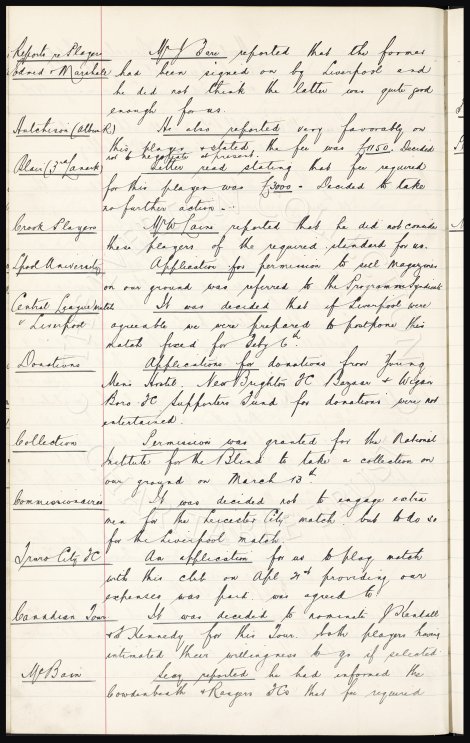 Reports re Players Mr J Bare reported that the former
Edred & Marshall had been signed on by Liverpool and
he did not think the latter was quite good
enough for us.
Hutchison (Albion R) He also reported very favorably on
this player & stated the fee was £1150. Decided
not to negotiate at present.
Blair (3rd Lanark) Letter read stating that fee required
for this player was £3000 - Decided to take
no further action -
Crook Players Mr W Caine reported that he did not consider
these players of the required standard for us.
Lpool University Application for permission to sell magazines
on our ground was referred to the Programme Syndicate
Central League Match It was decided that if Liverpool were
" Liverpool agreeable we were prepared to postpone this
match fixed for Feby 6th
Donations Applications for donations from Young
Men's Hostel, New Brighton FC Bazaar & Wigan
Boro FC Supporters Fund for donations were not
entertained.
Collection Permission was granted for the National
Institute for the Blind to take a collection on
our ground on March 13th
Commissionaires It was decided not to engage extra
men for the Leicester City match but to do so
for the Liverpool match.
Truro City FC An application for us to play match
with this club on Apl providing our
expenses was paid was agreed to
Canadian Tour It was decided to nominate J Kendall
& F Kennedy for this Tour. both players having
intimated their willingness to go if selected
McBain Secy reported he had informed the
Cowdenbeath & Rangers FCs that fee required